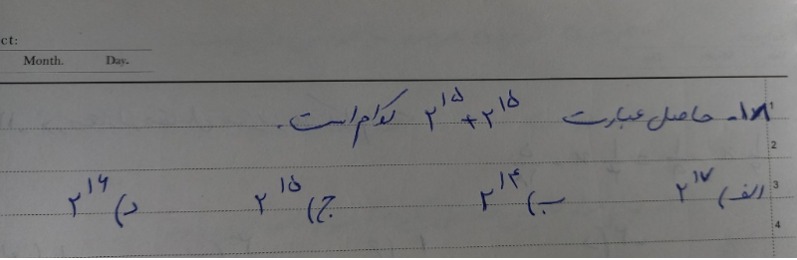 ct:
Month. Day.
۱۸- حاصل عبارت ۲^۱۵ + ۲^۱۵ کدام است.
2
الف) ۲^۱۷ ب) ۲^۱۴ ج) ۲^۱۵ د) ۲^۱۶
3
4